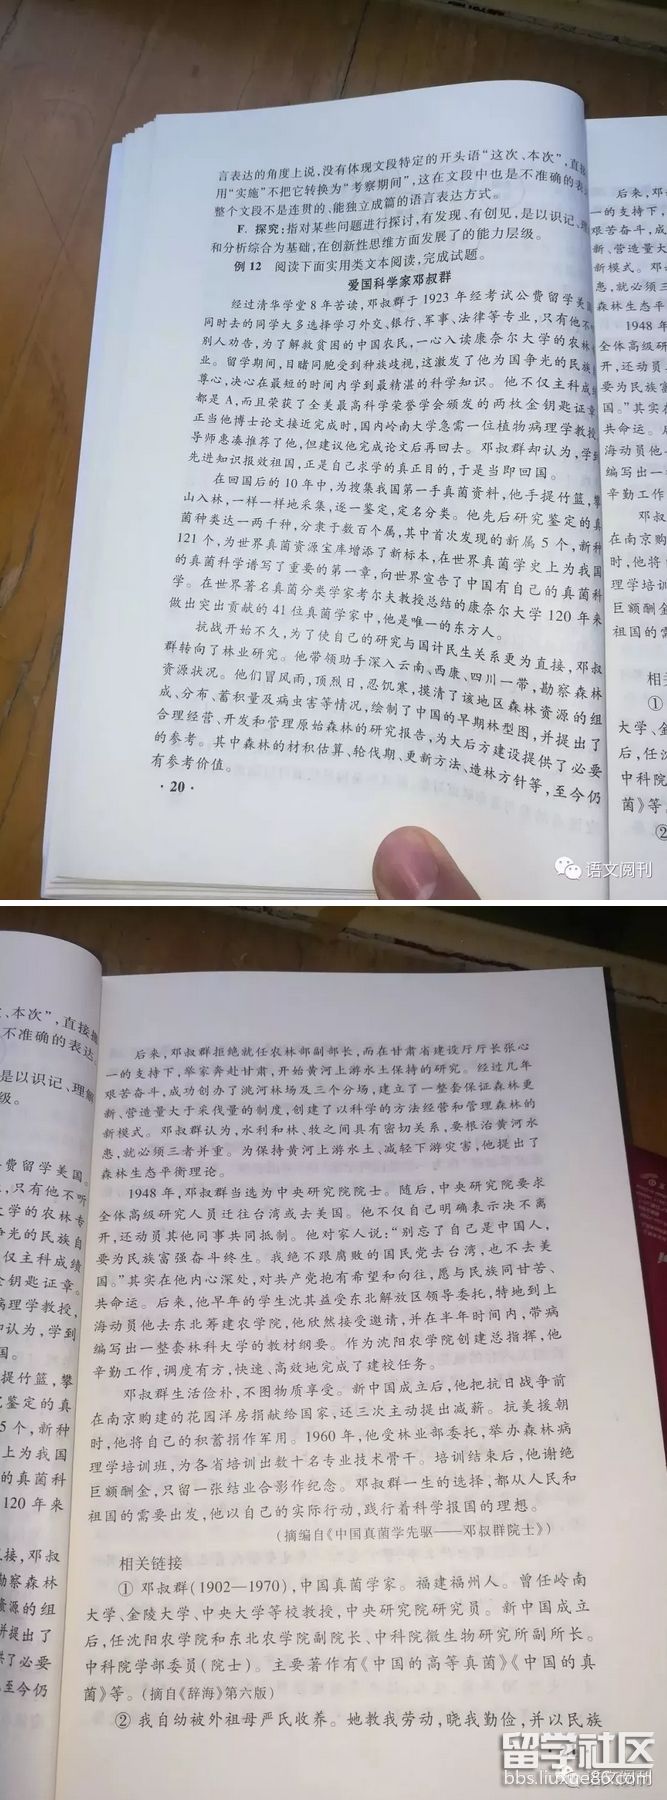 言表达的角度上说,没有体现文段特定的开头语“这次、本次”,直接
用“实施”不把它转换为“考察期间”,这在文段中也是不准确的表
整个文段不是连贯的、能独立成篇的语言表达方式。
F. 探究:指对某些问题进行探讨,有发现、有创见,是以识记、理
和分析综合为基础,在创新性思维方面发展了的能力层级。
例 12 阅读下面实用类文本阅读,完成试题。
爱国科学家邓叔群
经过清华学堂 8 年苦读,邓叔群于 1923 年经考试公费留学美
同时去的同学大多选择学习外交、银行、军事、法律等专业,只有他不
别人劝告,为了解救贫困的中国农民,一心入读康奈尔大学的农林
业。留学期间,目睹同胞受到种族歧视,这激发了他为国争光的民族
尊心,决心在最短的时间内学到最精湛的科学知识。他不仅主科成
都是 A,而且荣获了全美最高科学荣誉学会颁发的两枚金钥匙证章
正当他博士论文接近完成时,国内岭南大学急需一位植物病理学教授
导师惠凑推荐了他,但建议他完成论文后再回去。邓叔群却认为,学到
先进知识报效祖国,正是自己求学的真正目的,于是当即回国。
在回国后的 10 年中,为搜集我国第一手真菌资料,他手提竹篮,攀
山入林,一样一样地采集,逐一鉴定,定名分类。他先后研究鉴定的真
菌种类达一两千种,分隶于数百个属,其中首次发现的新属 5 个,新种
121 个,为世界真菌资源宝库增添了新标本,在世界真菌学史上为我国
的真菌科学谱写了重要的第一章,向世界宣告了中国有自己的真菌科
学。在世界著名真菌分类学家考尔夫教授总结的康奈尔大学 120 年来
做出突出贡献的 41 位真菌学家中,他是唯一的东方人。
抗战开始不久,为了使自己的研究与国计民生关系更为直接,邓叔
群转向了林业研究。他带领助手深入云南、西康、四川一带,勘察森林
资源状况。他们冒风雨,顶烈日,忍饥寒,摸清了该地区森林资源的组
成、分布、蓄积量及病虫害等情况,绘制了中国的早期林型图,并提出了
合理经营、开发和管理原始森林的研究报告,为大后方建设提供了必要
的参考。其中森林的材积估算、轮伐期、更新方法、造林方针等,至今仍
有参考价值。
·20·
后来,邓
一的支持下,
艰苦奋斗,成
新、营造量大
新模式。邓
患,就必须三
森林生态平
1948 年
全体高级研
开,还动员
要为民族富
国。”其实在
共命运。后
海动员他
编写出一
辛勤工作
邓叔
在南京购
时,他将
理学培训
巨额酬金
祖国的需
相关
①
大学、金
后,任沈
中科院
菌》等
②
语文阅刊
、本次”,直接
不准确的表达
是以识记、理解
级。
费留学美国。
只有他不听
大学的农林专
争光的民族自
仅主科成绩
金钥匙证章。
病理学教授,
却认为,学到
国。
提竹篮,攀
究鉴定的真
5 个,新种
上为我国
的真菌科
120 年来
接,邓叔
勘察森林
资源的组
并提出了
了必要
至今仍
后来,邓叔群拒绝就任农林部副部长,而在甘肃省建设厅厅长张心
一的支持下,举家奔赴甘肃,开始黄河上游水土保持的研究。经过几年
艰苦奋斗,成功创办了洮河林场及三个分场,建立了一整套保证森林更
新、营造量大于采伐量的制度,创建了以科学的方法经营和管理森林的
新模式。邓叔群认为,水利和林、牧之间具有密切关系,要根治黄河水
患,就必须三者并重。为保持黄河上游水土、减轻下游灾害,他提出了
森林生态平衡理论。
1948 年,邓叔群当选为中央研究院院士。随后,中央研究院要求
全体高级研究人员迁往台湾或去美国。他不仅自己明确表示决不离
开,还动员其他同事共同抵制。他对家人说:“别忘了自己是中国人,
要为民族富强奋斗终生。我绝不跟腐败的国民党去台湾,也不去美
国。”其实在他内心深处,对共产党抱有希望和向往,愿与民族同甘苦、
共命运。后来,他早年的学生沈其益受东北解放区领导委托,特地到上
海动员他去东北筹建农学院,他欣然接受邀请,并在半年时间内,带病
编写出一整套林科大学的教材纲要。作为沈阳农学院创建总指挥,他
辛勤工作,调度有方,快速、高效地完成了建校任务。
邓叔群生活俭朴,不图物质享受。新中国成立后,他把抗日战争前
在南京购建的花园洋房捐献给国家,还三次主动提出减薪。抗美援朝
时,他将自己的积蓄捐作军用。1960 年,他受林业部委托,举办森林病
理学培训班,为各省培训出数十名专业技术骨干。培训结束后,他谢绝
巨额酬金,只留一张结业合影作纪念。邓叔群一生的选择,都从人民和
祖国的需要出发,他以自己的实际行动,践行着科学报国的理想。
(摘编自《中国真菌学先驱——邓叔群院士》)
相关链接
① 邓叔群(1902—1970),中国真菌学家。福建福州人。曾任岭南
大学、金陵大学、中央大学等校教授,中央研究院研究员。新中国成立
后,任沈阳农学院和东北农学院副院长、中科院微生物研究所副所长。
中科院学部委员(院士)。主要著作有《中国的高等真菌》《中国的真
菌》等。(摘自《辞海》第六版)
② 我自幼被外祖母严氏收养。她教我劳动,晓我勤俭,并以民族
留学社区
bbs.liuxue86.com